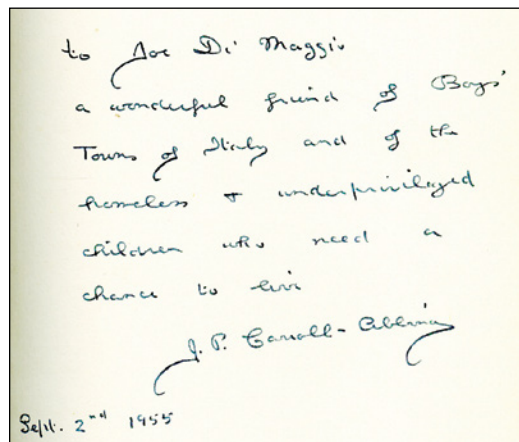 to Joe Di Maggio
a wonderful friend of Boys'
Towns of Italy and of the
homeless + underprivileged
children who need a
chance to live
J. P. Carroll-Abbing
Sept. 2nd 1955